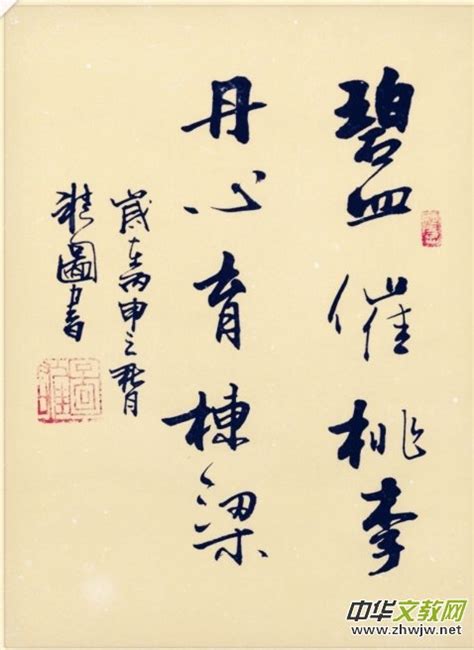 碧血催桃李
丹心育棟梁
歲在丙申之月
圖書
中华文教网
www.zhwjw.net